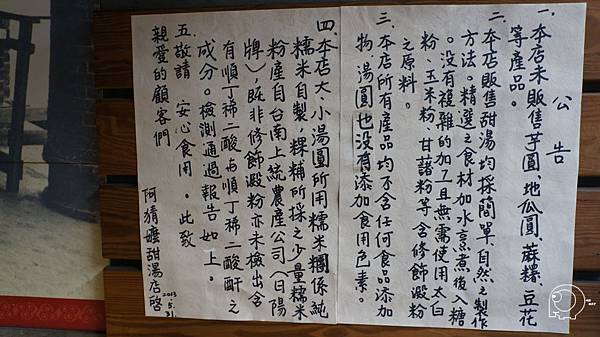 公告
一、本店未販售芋圓、地瓜圓、蔴糬、豆花
等產品。
二、本店販售甜湯均採簡單、自然之製作
方法。精選之食材加水烹煮後入糖
。没有複雜的加工且無需使用太白
粉、玉米粉、甘藷粉等含修飾澱粉
之原料。
三、本店所有產品均不含任何食品添加
物,湯圓也没有添加食用色素。
四、本店大、小湯圓所用糯米糰係純
糯米自製,粿粞所採之少量糯米
粉產自台南上統農產公司(日陽
牌)既非修飾澱粉亦未檢出含
有順丁稀二酸與順丁稀二酸酐之
成分。檢測通過報告如上。
五、敬請 安心食用。此致
親愛的顧客們
阿猜嬤甜湯店啓
2013.5.31